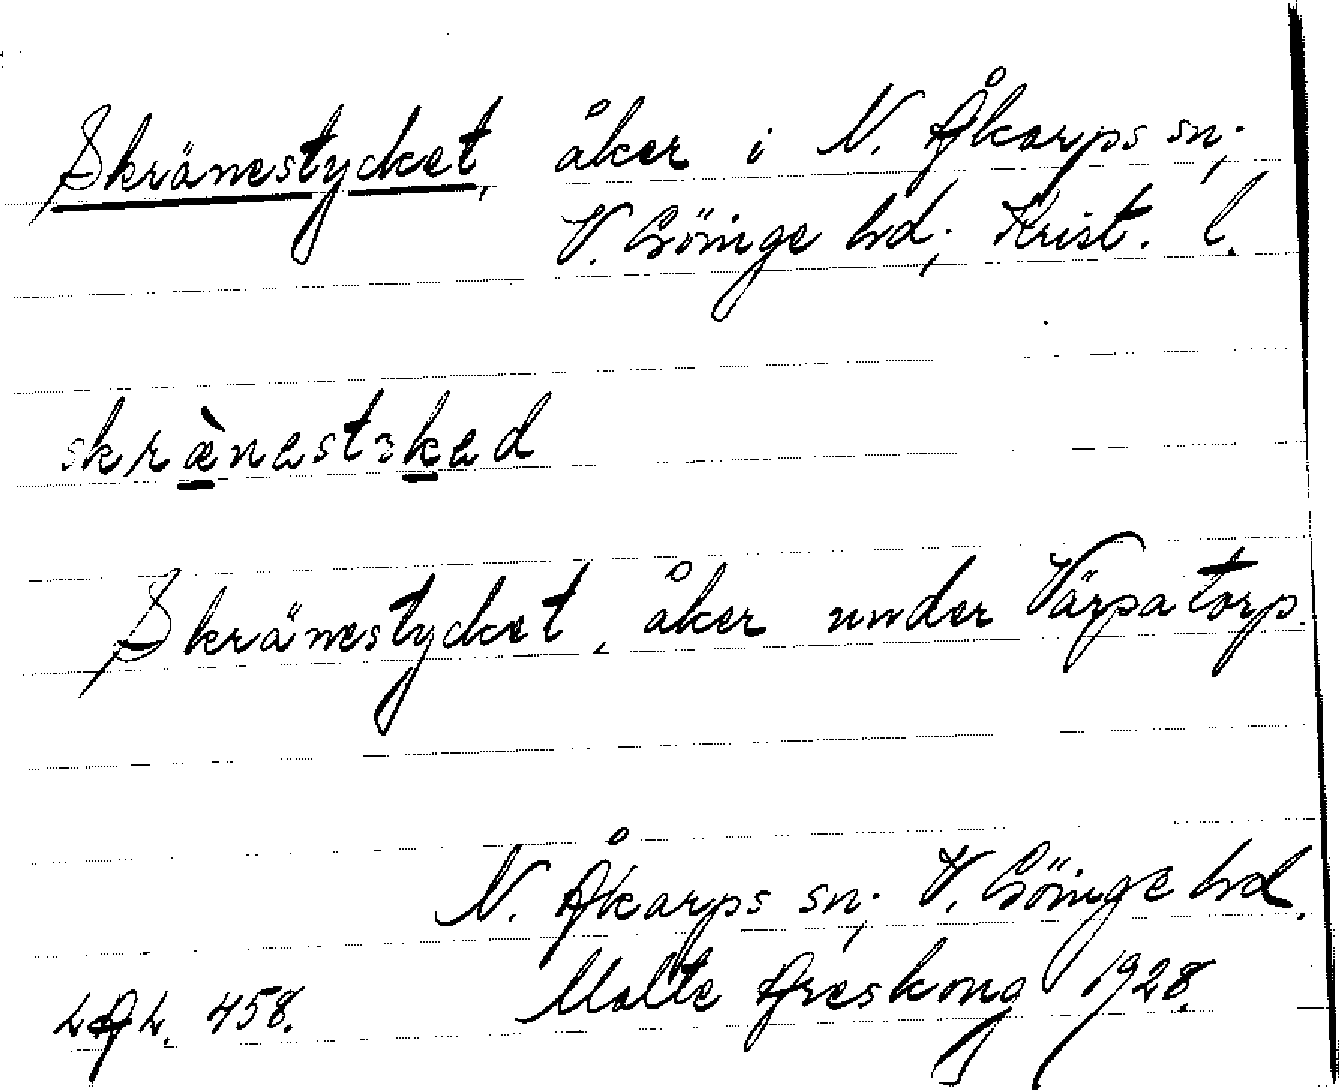 Skränestycket, åker i N. Åkarps sn;
V. Göinge hd; Krist. l.
skrænast kad
Skränestycket, åker under Värpatorp.
N. Åkarps sn; V. Göinge hd.
LAL. 458. Malte Areskoug 1928.